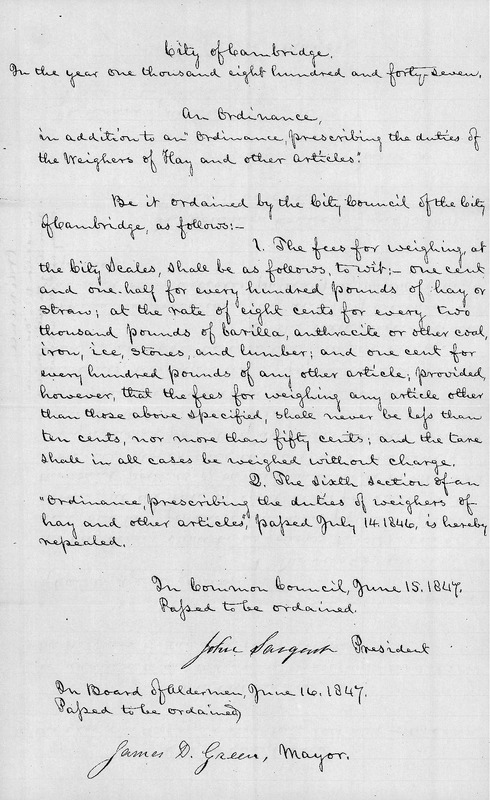 City of Cambridge.
In the year one thousand eight hundred and forty-seven.
An Ordinance,
in addition to an "Ordinance, prescribing the duties of
the Weighers of Hay and other articles."
Be it ordained by the City Council of the City
of Cambridge, as follows:—
1. The fees for weighing, at
the City Scales, shall be as follows, to wit;— one cent
and one-half for every hundred pounds of hay or
straw; at the rate of eight cents for every two
thousand pounds of barilla, anthracite or other coal,
iron, ice, stones, and lumber; and one cent for
every hundred pounds of any other article; provided,
however, that the fees for weighing any article other
than those above specified, shall never be less than
ten cents, nor more than fifty cents; and the tare
shall in all cases be weighed without charge.
2. The sixth section of an
"Ordinance, prescribing the duties of weighers of
hay and other articles", passed July 14. 1846, is hereby
repealed.
In Common Council, June 15. 1847.
Passed to be ordained.
John Sargent President
In Board of Aldermen, June 16. 1847.
Passed to be ordained
James D. Green, Mayor.